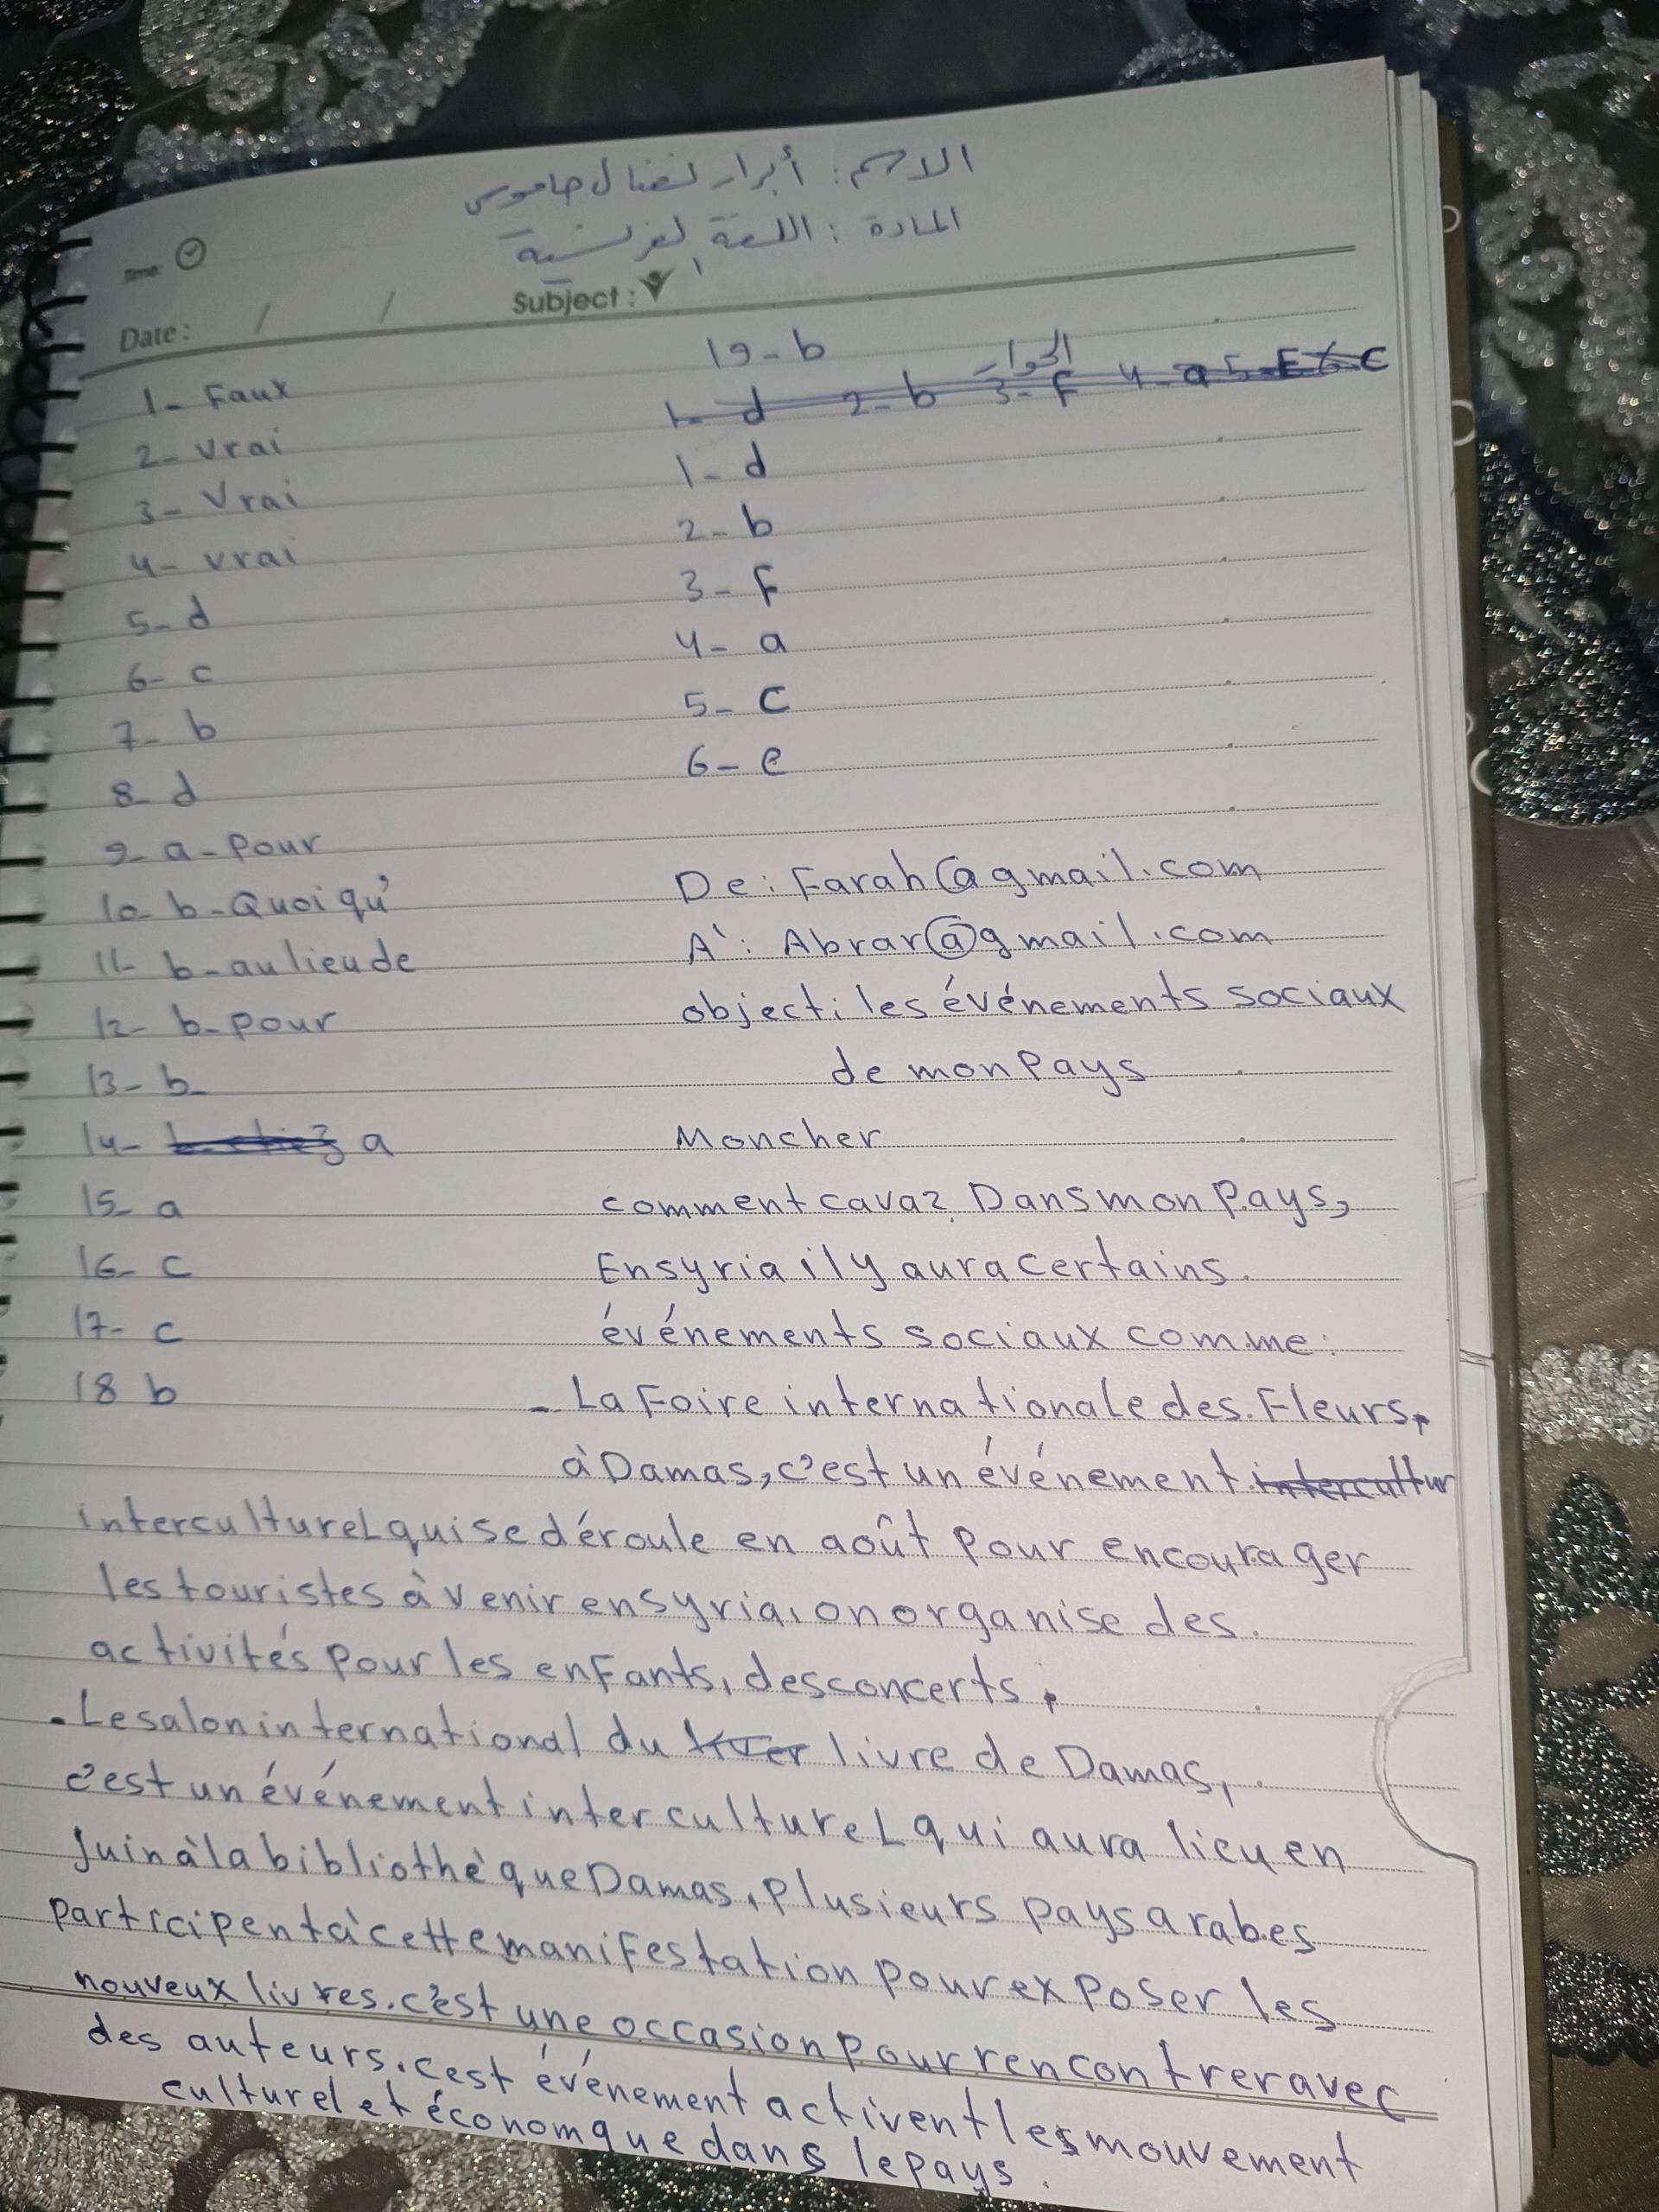 الاسم : أبرار نضال جاموس
المادة : اللغة الفرنسية
Time:
Date: / /
Subject :
1- Faux
2- Vrai
3- Vrai
4- vrai
5- d
6- c
7- b
8- d
9- a- Pour
10- b- Quoi qu'
11- b- au lieu de
12- b- pour
13- b-
14- a
15- a
16- c
17- c
18 b
19- b
الحوار
1- d 2- b 3- F 4- a 5- E 6- C
1- d
2- b
3- F
4- a
5- C
6- e
De: Farah@gmail.com
A': Abrar@gmail.com
object: les événements sociaux
de mon Pays
Mon cher
comment cava? Dans mon Pays,
En syria il y aura certains
événements sociaux comme:
- La Foire internationale des Fleurs,
à Damas, c'est un événement intercultur
interculturel qui se déroule en août Pour encourager
les touristes à venir en syria, on organise des
activités pour les enfants, des concerts.
. Le salon international du livre de Damas,
c'est un événement interculturel qui aura lieu en
Juin à la bibliothèque Damas, Plusieurs pays arabes
participent à cette manifestation pour exposer les
nouveux livres. c'est une occasion pour rencontrer avec
des auteurs. cest événement activent les mouvement
culturel et économque dans le pays.